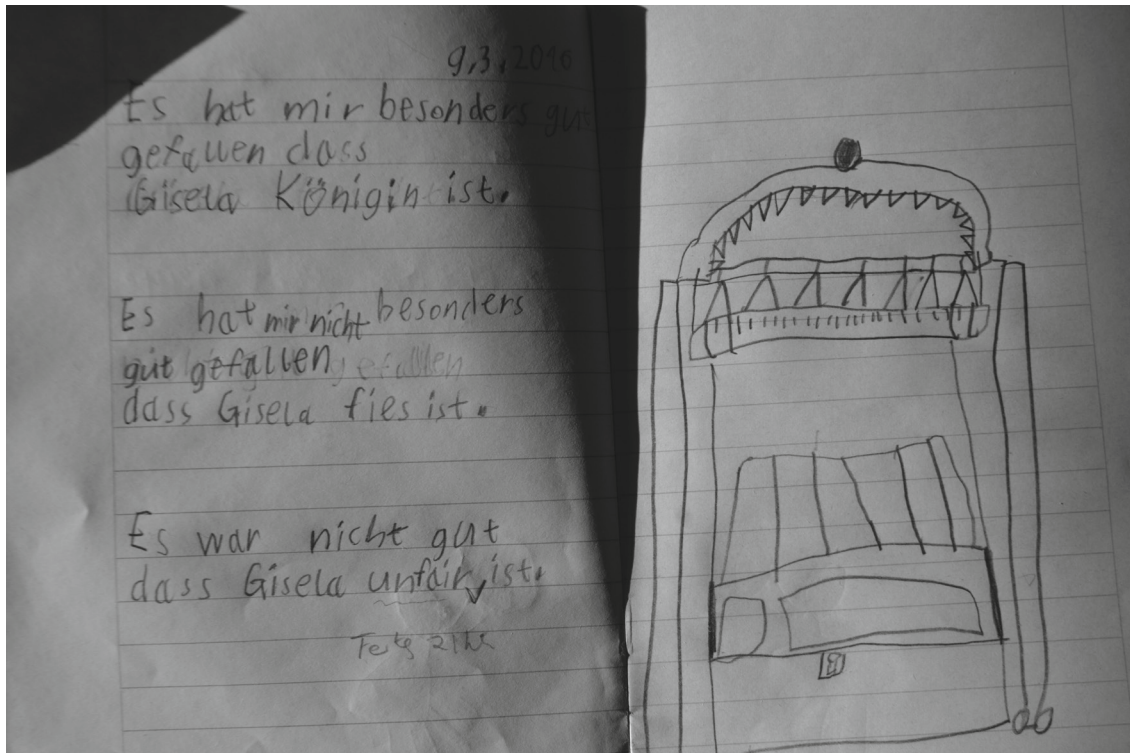 9.3.2016
Es hat mir besonders gut
gefallen dass
Gisela Königin ist.
Es hat mir nicht besonders
gut gefallen gefallen
dass Gisela fies ist.
Es war nicht gut
dass Gisela unfair ist.